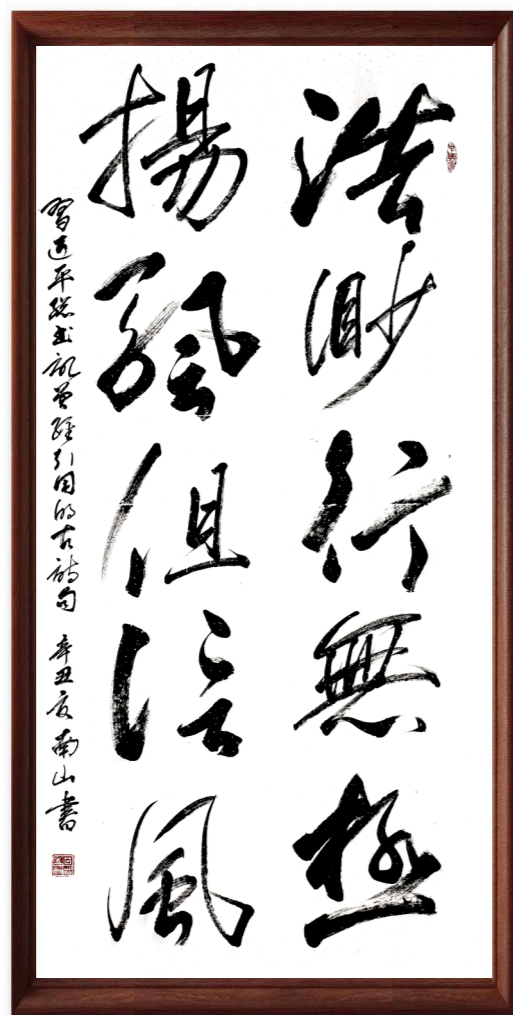 浩渺行無極
揚颿但信風
習近平總書記曾經引用的古詩句 辛丑夏南山書